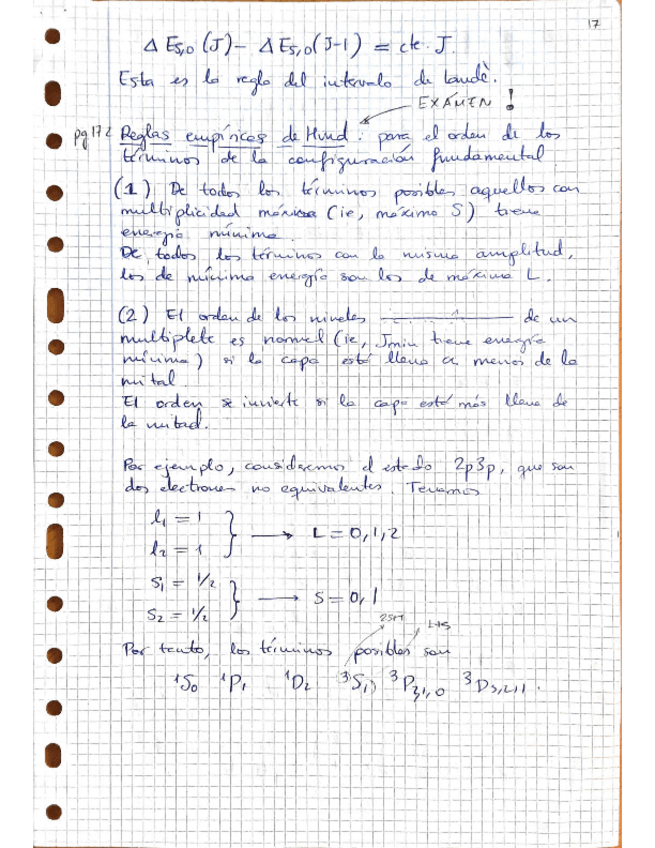 17
Δ E_{S,O} (J) - Δ E_{S,O} (J-1) = cte. J.
Esta es la regla del intervalo de Landè.
EXÁMEN!
pg 172 Reglas empíricas de Hund: para el orden de los
términos de la configuración fundamental
(1) De todos los términos posibles aquellos con
multiplicidad máxima (ie, máximo S) tiene
energía mínima.
De todos los términos con la misma amplitud,
los de mínima energía son los de máximo L.
(2) El orden de los niveles de un
multiplete es normal (ie, Jmin tiene energía
mínima) si la capa está llena a menos de la
mitad.
El orden se invierte si la capa está más llena de
la mitad.
Por ejemplo, consideremos el estado 2p3p, que son
dos electrones no equivalentes. Tenemos
l₁ = 1
l₂ = 1 } → L = 0,1,2
S₁ = 1/2
S₂ = 1/2 } → S = 0,1
2S+1 L+S
Por tanto, los términos posibles son
¹S₀ ¹P₁ ¹D₂ ³S₁ ³P₂,₁,₀ ³D₃,₂,₁.